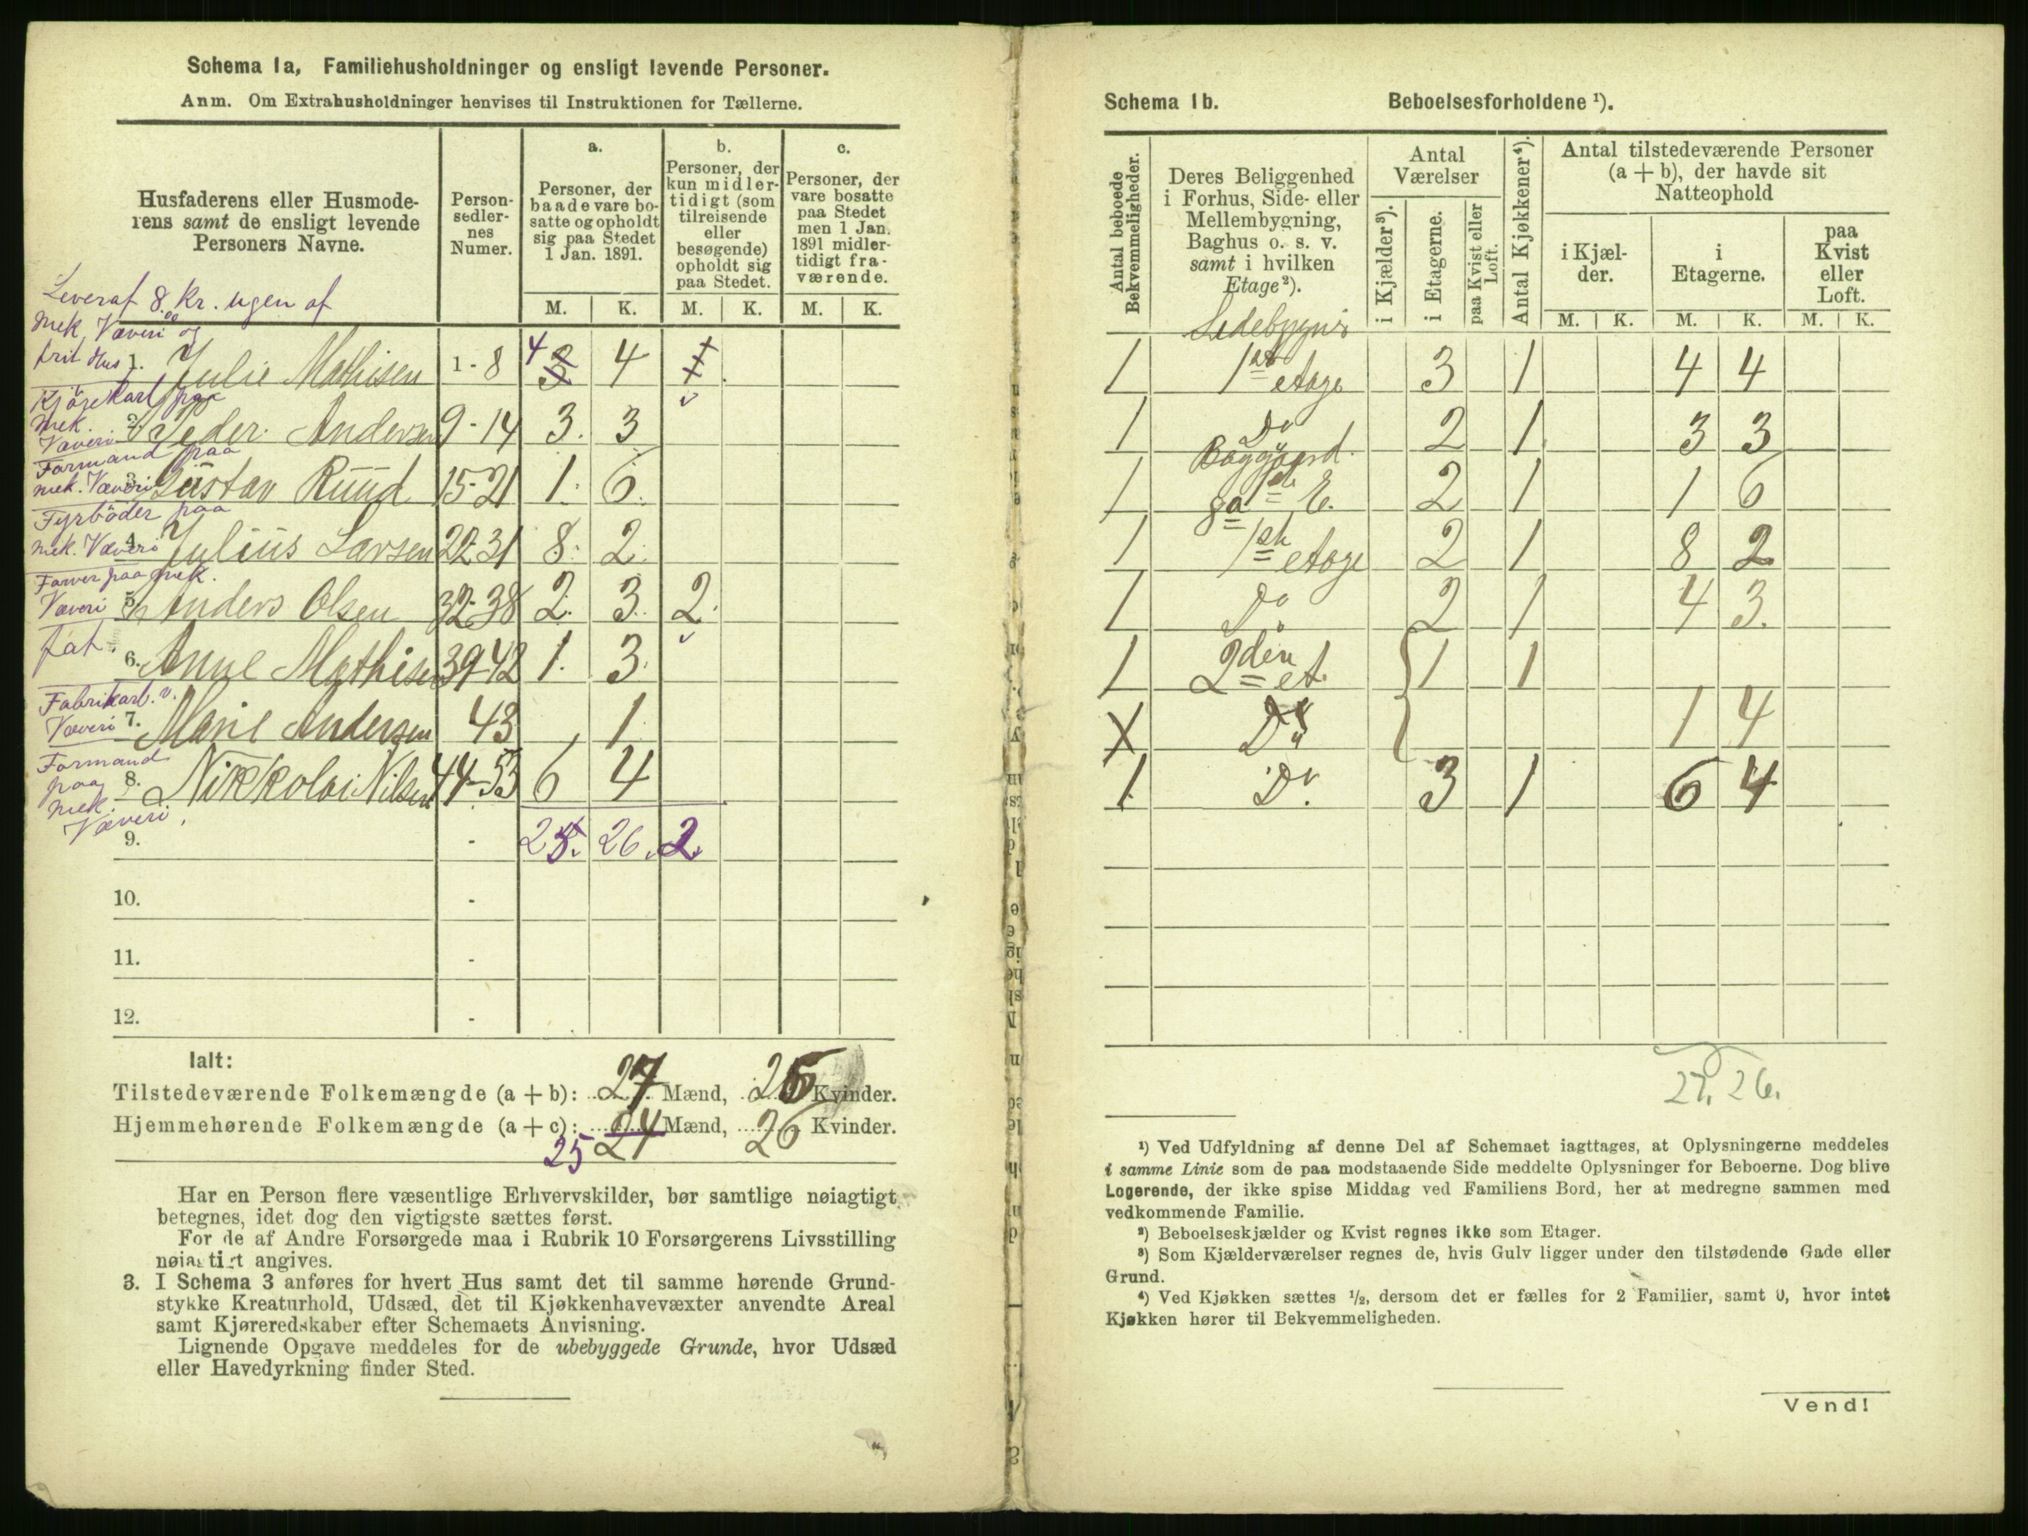 Schema 1a, Familiehusholdninger og ensligt levende Personer.
Anm. Om Extrahusholdninger henvises til Instruktionen for Tællerne.
Husfaderens eller Husmode-
rens samt de ensligt levende
Personers Navne.
Person-
sedler-
nes
Numer.
a.
Personer, der
baade vare bo-
satte og opholdt
sig paa Stedet
1 Jan. 1891.
b.
Personer, der
kun midler-
tidigt (som
tilreisende
eller
besøgende)
opholdt sig
paa Stedet.
c.
Personer, der
vare bosatte
paa Stedet
men 1 Jan.
1891 midler-
tidigt fra-
værende.
M. K. M. K. M. K.
Leveraf 8.00 Kr. ugen af
mek. Væveri og
frit Hus 1. Julie Mathisen 1-8 4 3 4 1
Kjörekarl paa
mek.
Væveri 2. Peder Andersen 9-14 3. 3
Formand paa
mek. Væveri 3. Gustav Ruud 15-21 1. 6.
Fyrböder paa
mek. Væveri 4. Julius Larsen 22-31 8. 2.
Farver paa mek.
Væveri 5. Anders Olsen 32-38 2. 3. 2.
fat. 6. Anne Mathisen 39-42 1. 3.
Fabrikarb. v.
Væveri 7. Marie Andersen 43 , 1
Formand
paa
mek.
Væveri. 8. Nikkolai Nilsen 44-53 6 4
9. - 25. 26. 2.
10. -
11. -
12. -
Ialt:
Tilstedeværende Folkemængde (a + b): 27 Mænd, 26 Kvinder.
Hjemmehørende Folkemængde (a + c): 24 Mænd, 26 Kvinder.
25
Har en Person flere væsentlige Erhvervskilder, bør samtlige nøiagtigt
betegnes, idet dog den vigtigste sættes først.
For de af Andre Forsørgede maa i Rubrik 10 Forsørgerens Livsstilling
nøiagtigt angives.
3. I Schema 3 anføres for hvert Hus samt det til samme hørende Grund-
stykke Kreaturhold, Udsæd, det til Kjøkkenhavevæxter anvendte Areal
samt Kjøreredskaber efter Schemaets Anvisning.
Lignende Opgave meddeles for de ubebyggede Grunde, hvor Udsæd
eller Havedyrkning finder Sted.
Schema 1b. Beboelsesforholdene ¹).
Antal beboede
Bekvemmeligheder.
Deres Beliggenhed
i Forhus, Side- eller
Mellembygning,
Baghus o. s. v.
samt i hvilken
Etage²).
Antal
Værelser
i Kjælder³).
i Etagerne.
paa Kvist eller
Loft.
Antal Kjøkkener⁴).
Antal tilstedeværende Personer
(a + b), der havde sit
Natteophold
i Kjæl-
der.
i
Etagerne.
paa
Kvist
eller
Loft.
M. K. M. K. M. K.
Sidebygnig
1 1ste etage 3 1 4 4
1 Do 2 1 3 3
Baggaard.
1 1ste E. 2 1 1 6
1 1ste etage 2 1 8 2
1 Do 2 1 4 3.
1 2den et. 1 1
X Do 1 4
1 Do. 3 1 6 4
27. 26.
¹) Ved Udfyldning af denne Del af Schemaet iagttages, at Oplysningerne meddeles
i samme Linie som de paa modstaaende Side meddelte Oplysninger for Beboerne. Dog blive
Logerende, der ikke spise Middag ved Familiens Bord, her at medregne sammen med
vedkommende Familie.
²) Beboelseskjælder og Kvist regnes ikke som Etager.
³) Som Kjælderværelser regnes de, hvis Gulv ligger under den tilstødende Gade eller
Grund.
⁴) Ved Kjøkken sættes ¹/₂, dersom det er fælles for 2 Familier, samt 0, hvor intet
Kjøkken hører til Bekvemmeligheden.
Vend!